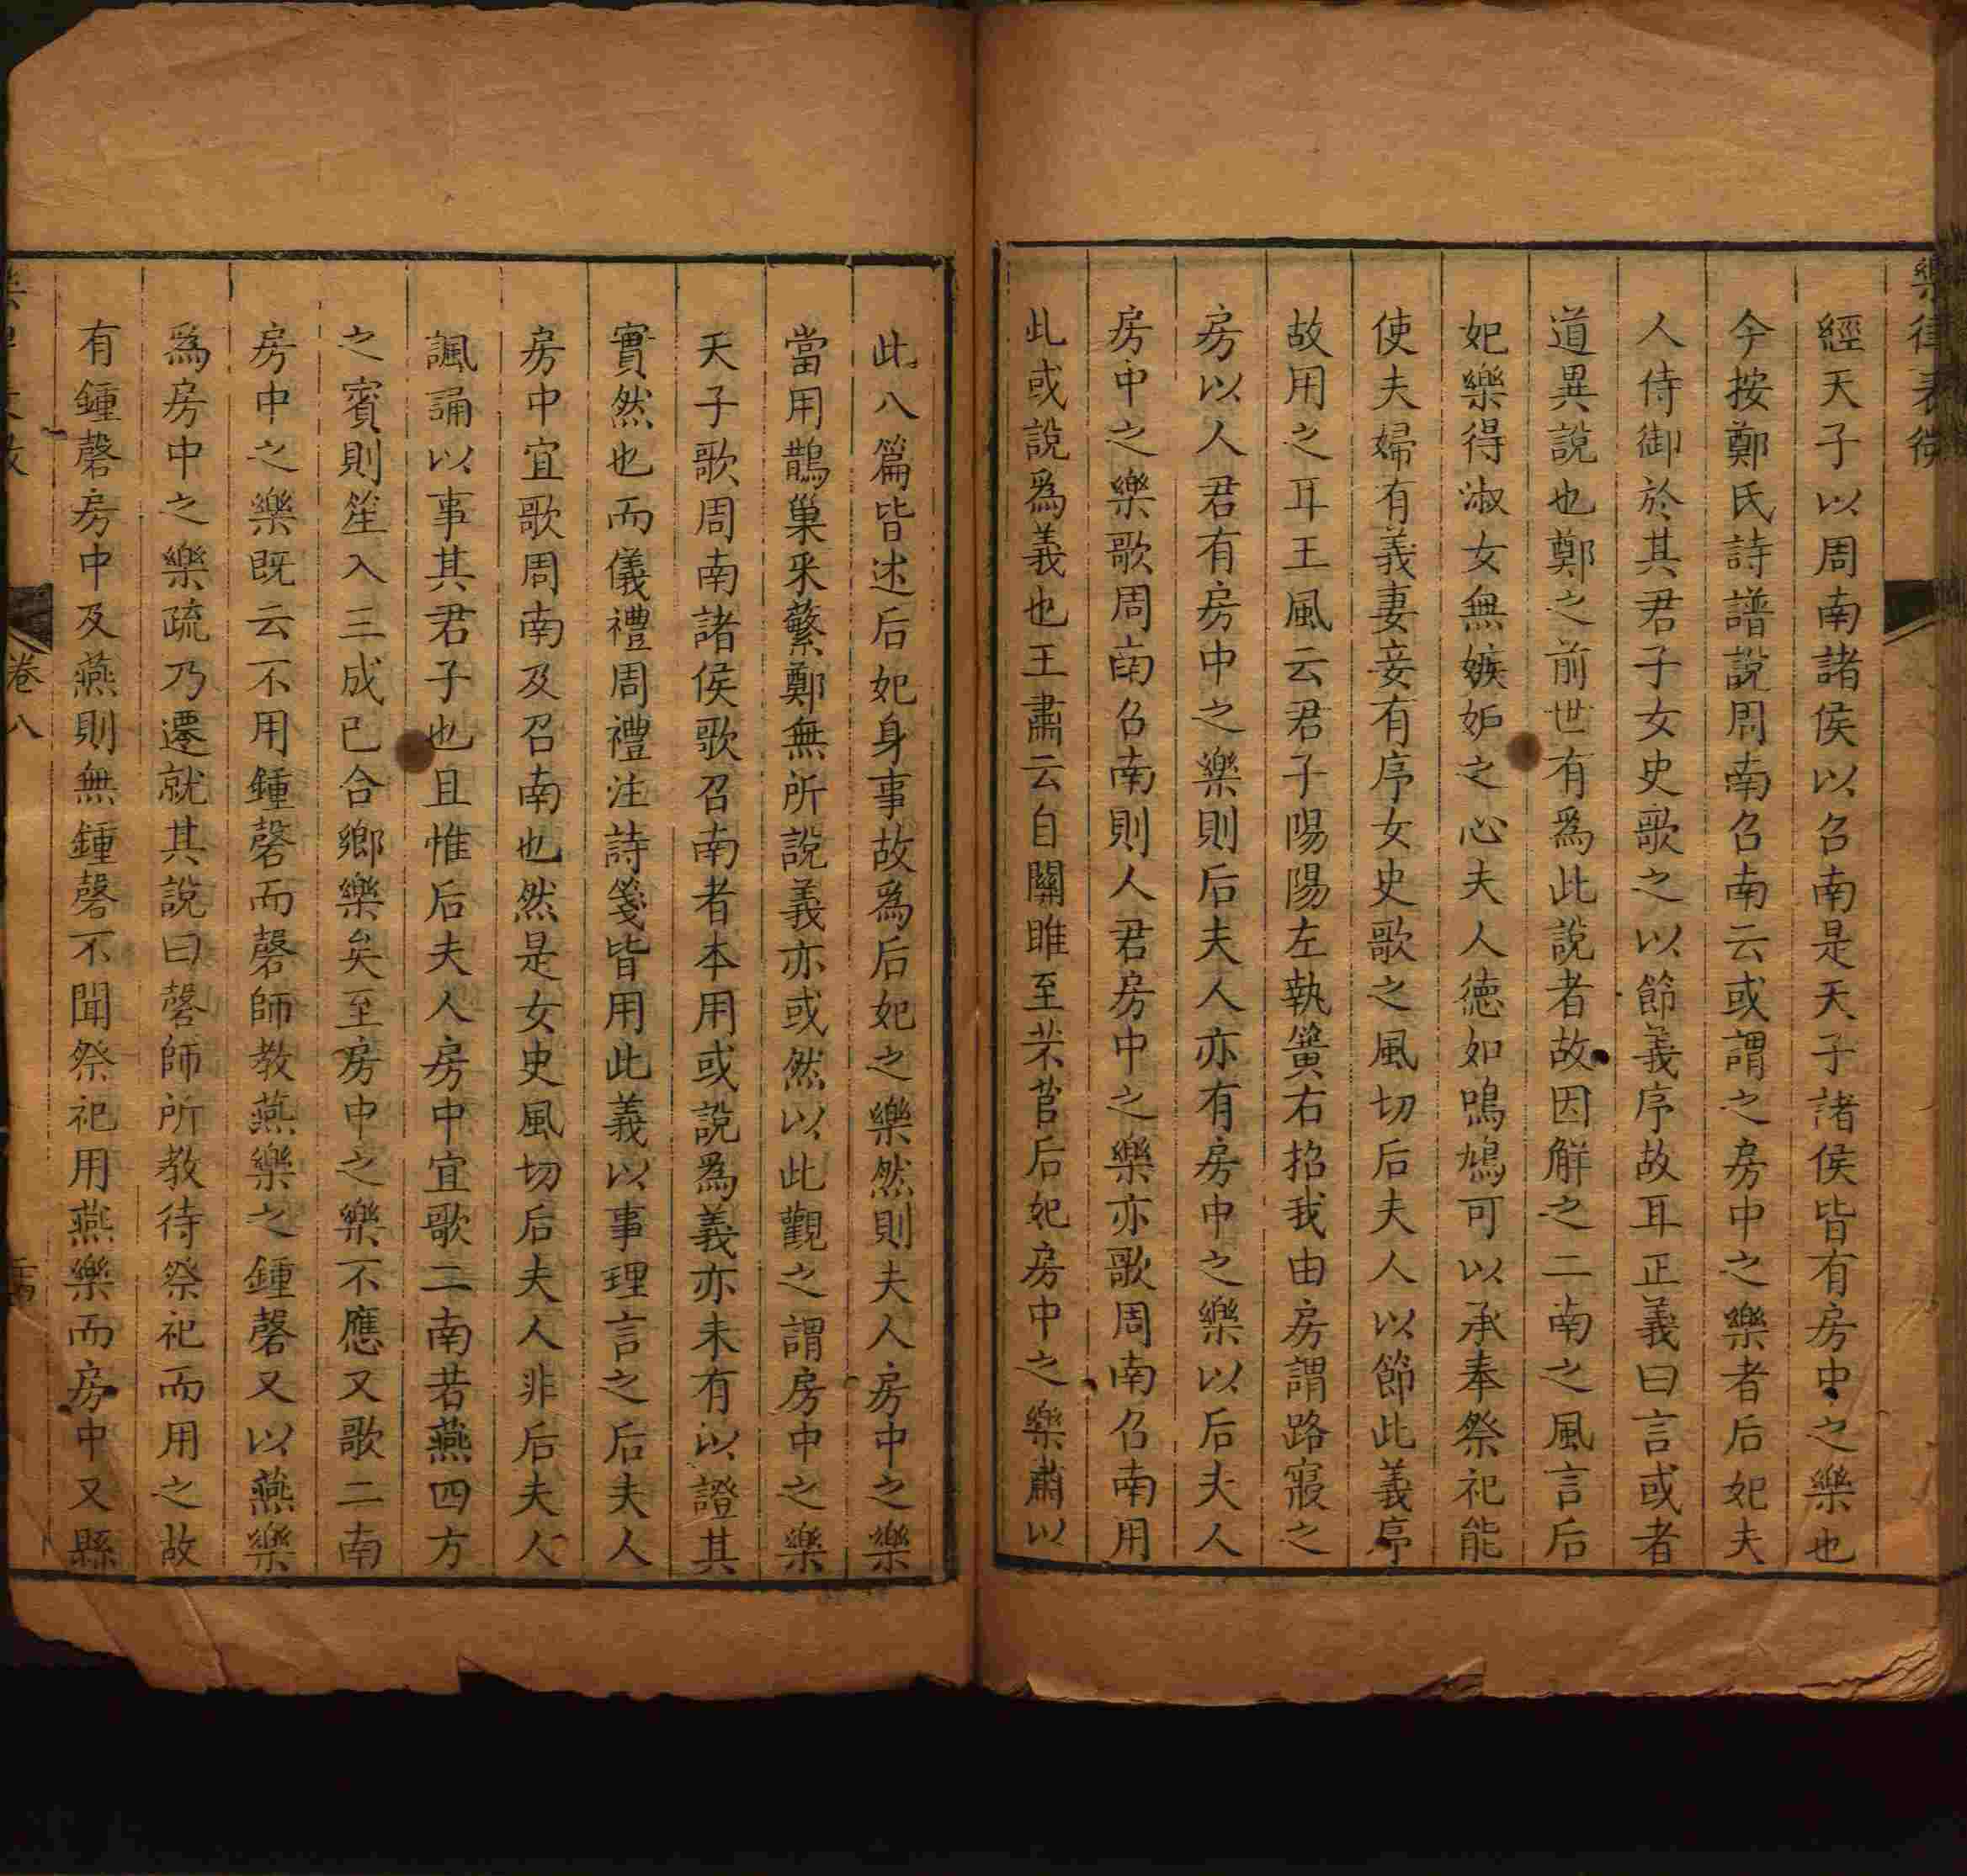 樂律表微
經天子以周南諸侯以召南是天子諸侯皆有房中之樂也
今按鄭氏詩譜說周南召南云或謂之房中之樂者后妃夫
人侍御於其君子女史歌之以節義序故耳正義曰言或者
道異說也鄭之前世有爲此說者故因解之二南之風言后
妃樂得淑女無嫉妒之心夫人德如鳲鳩可以承奉祭祀能
使夫婦有義妻妾有序女史歌之風切后夫人以節此義序
故用之耳王風云君子陽陽左執簧右招我由房謂路寢之
房以人君有房中之樂則后夫人亦有房中之樂以后夫人
房中之樂歌周南召南則人君房中之樂亦歌周南召南用
此或說爲義也王肅云自關雎至芣苢后妃房中之樂肅以
此八篇皆述后妃身事故爲后妃之樂然則夫人房中之樂
當用鵲巢采蘩鄭無所說義亦或然以此觀之謂房中之樂
天子歌周南諸侯歌召南者本用或說爲義亦未有以證其
實然也而儀禮周禮注詩箋皆用此義以事理言之后夫人
房中宜歌周南及召南也然是女史風切后夫人非后夫人
諷誦以事其君子也且惟后夫人房中宜歌二南若燕四方
之賓則笙入三成已合鄉樂矣至房中之樂不應又歌二南
房中之樂既云不用鍾磬而磬師教燕樂之鍾磬又以燕樂
爲房中之樂疏乃遷就其說曰磬師所教待祭祀而用之故
有鍾磬房中及燕則無鍾磬不聞祭祀用燕樂而房中又縣
卷八